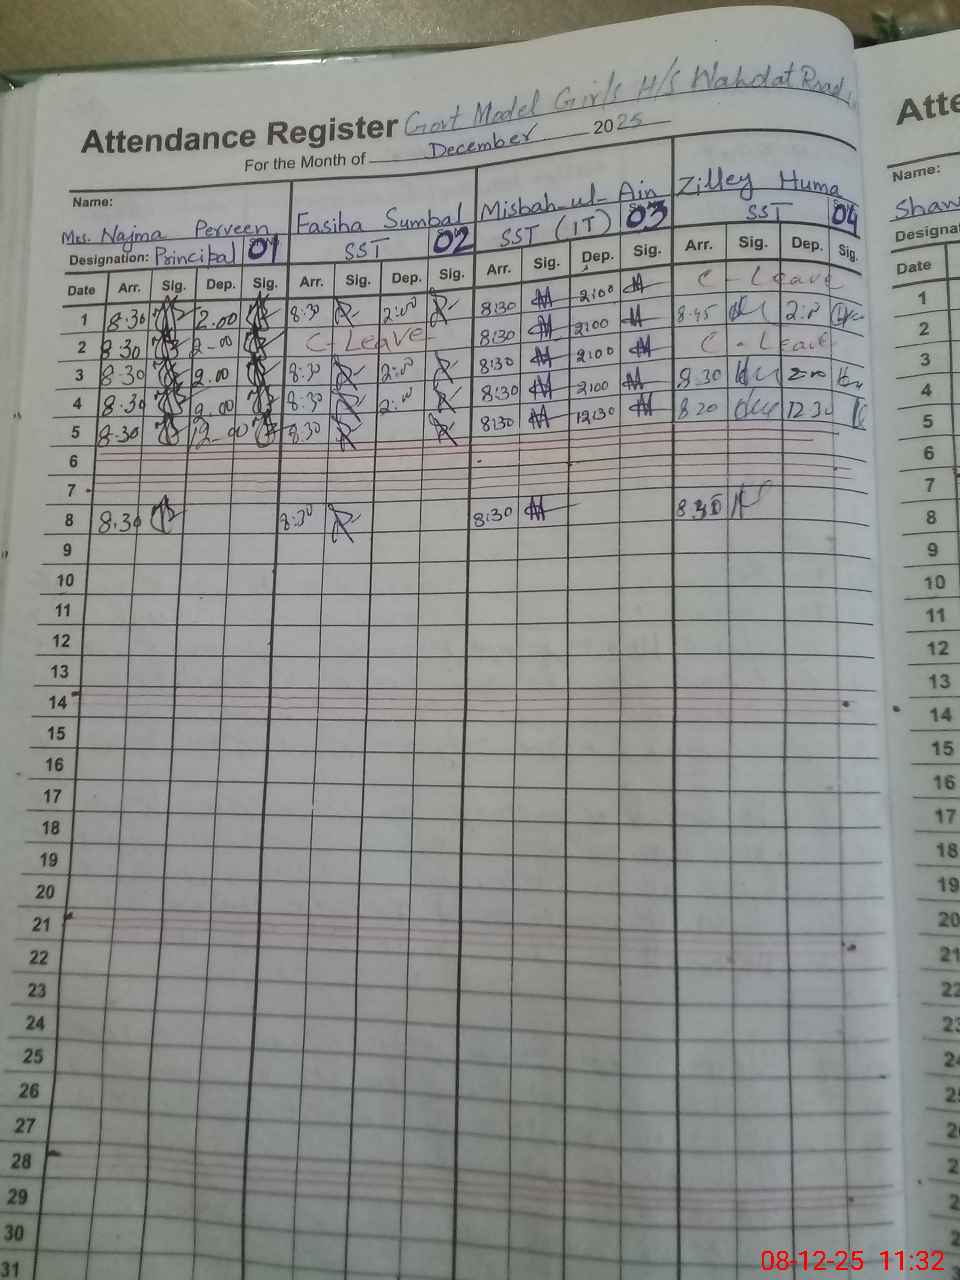 Attendance Register Govt Model Girls H/S Wahdat Road
For the Month of December 2025
Name: Mrs. Najma Perveen Fasiha Sumbal Misbah-ul-Ain Zilley Huma
Designation: Principal 01 SST 02 SST (IT) 03 SST 04
Date Arr. Sig. Dep. Sig. Arr. Sig. Dep. Sig. Arr. Sig. Dep. Sig. Arr. Sig. Dep. Sig.
1 8:30 2.00 8:30 2:00 8:30 2:00 C-Leave
2 8:30 2-00 C-Leave 8:30 2:00 8:45
3 8:30 2.00 8:30 2:00 8:30 2:00 C-Leave
4 8:30 2.00 8:30 2:00 8:30 2:00 8:30
5 8:30 12-00 8:30 8:30 12:30 8 20 12:30
6
7
8 8:30 8:30 8:30 8:30
9
10
11
12
13
14
15
16
17
18
19
20
21
22
23
24
25
26
27
28
29
30
31
Atte
Name:
Shaw
Designat
Date
1
2
3
4
5
6
7
8
9
10
11
12
13
14
15
16
17
18
19
20
21
22
08-12-25 11:32